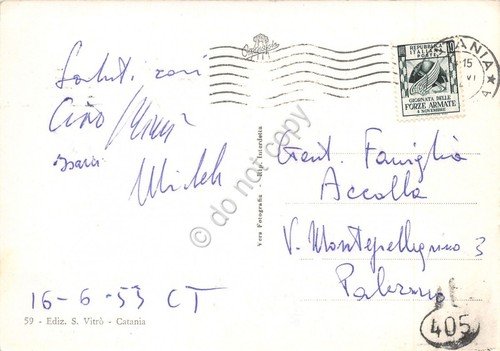 Saluti cari
Ciao
Michele
16-6-53 CT
59 - Ediz. S. Vitrò - Catania
Vera Fotografia - Rip. Interdetta
REPUBBLICA
ITALIANA
POSTE
10
GIORNATA DELLE
FORZE ARMATE
4 NOVEMBRE
CATANIA
15
VI
Gent. Famiglia
Accolla
V. Montepellegrino 3
Palermo
405
© do not copy